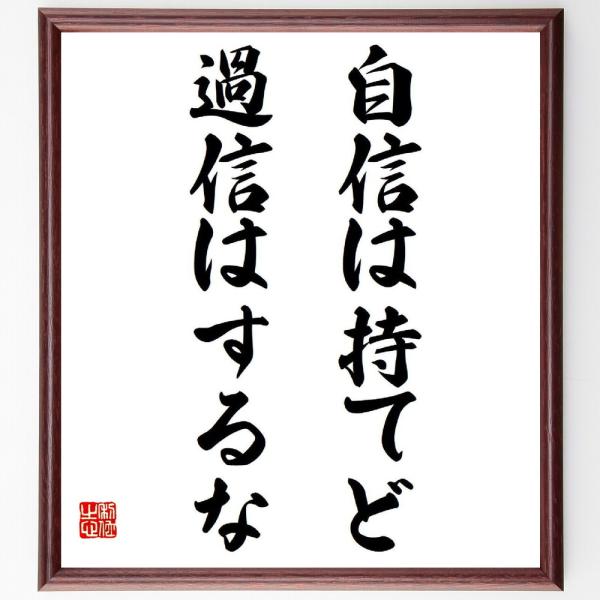 自信は持てど
過信はするな